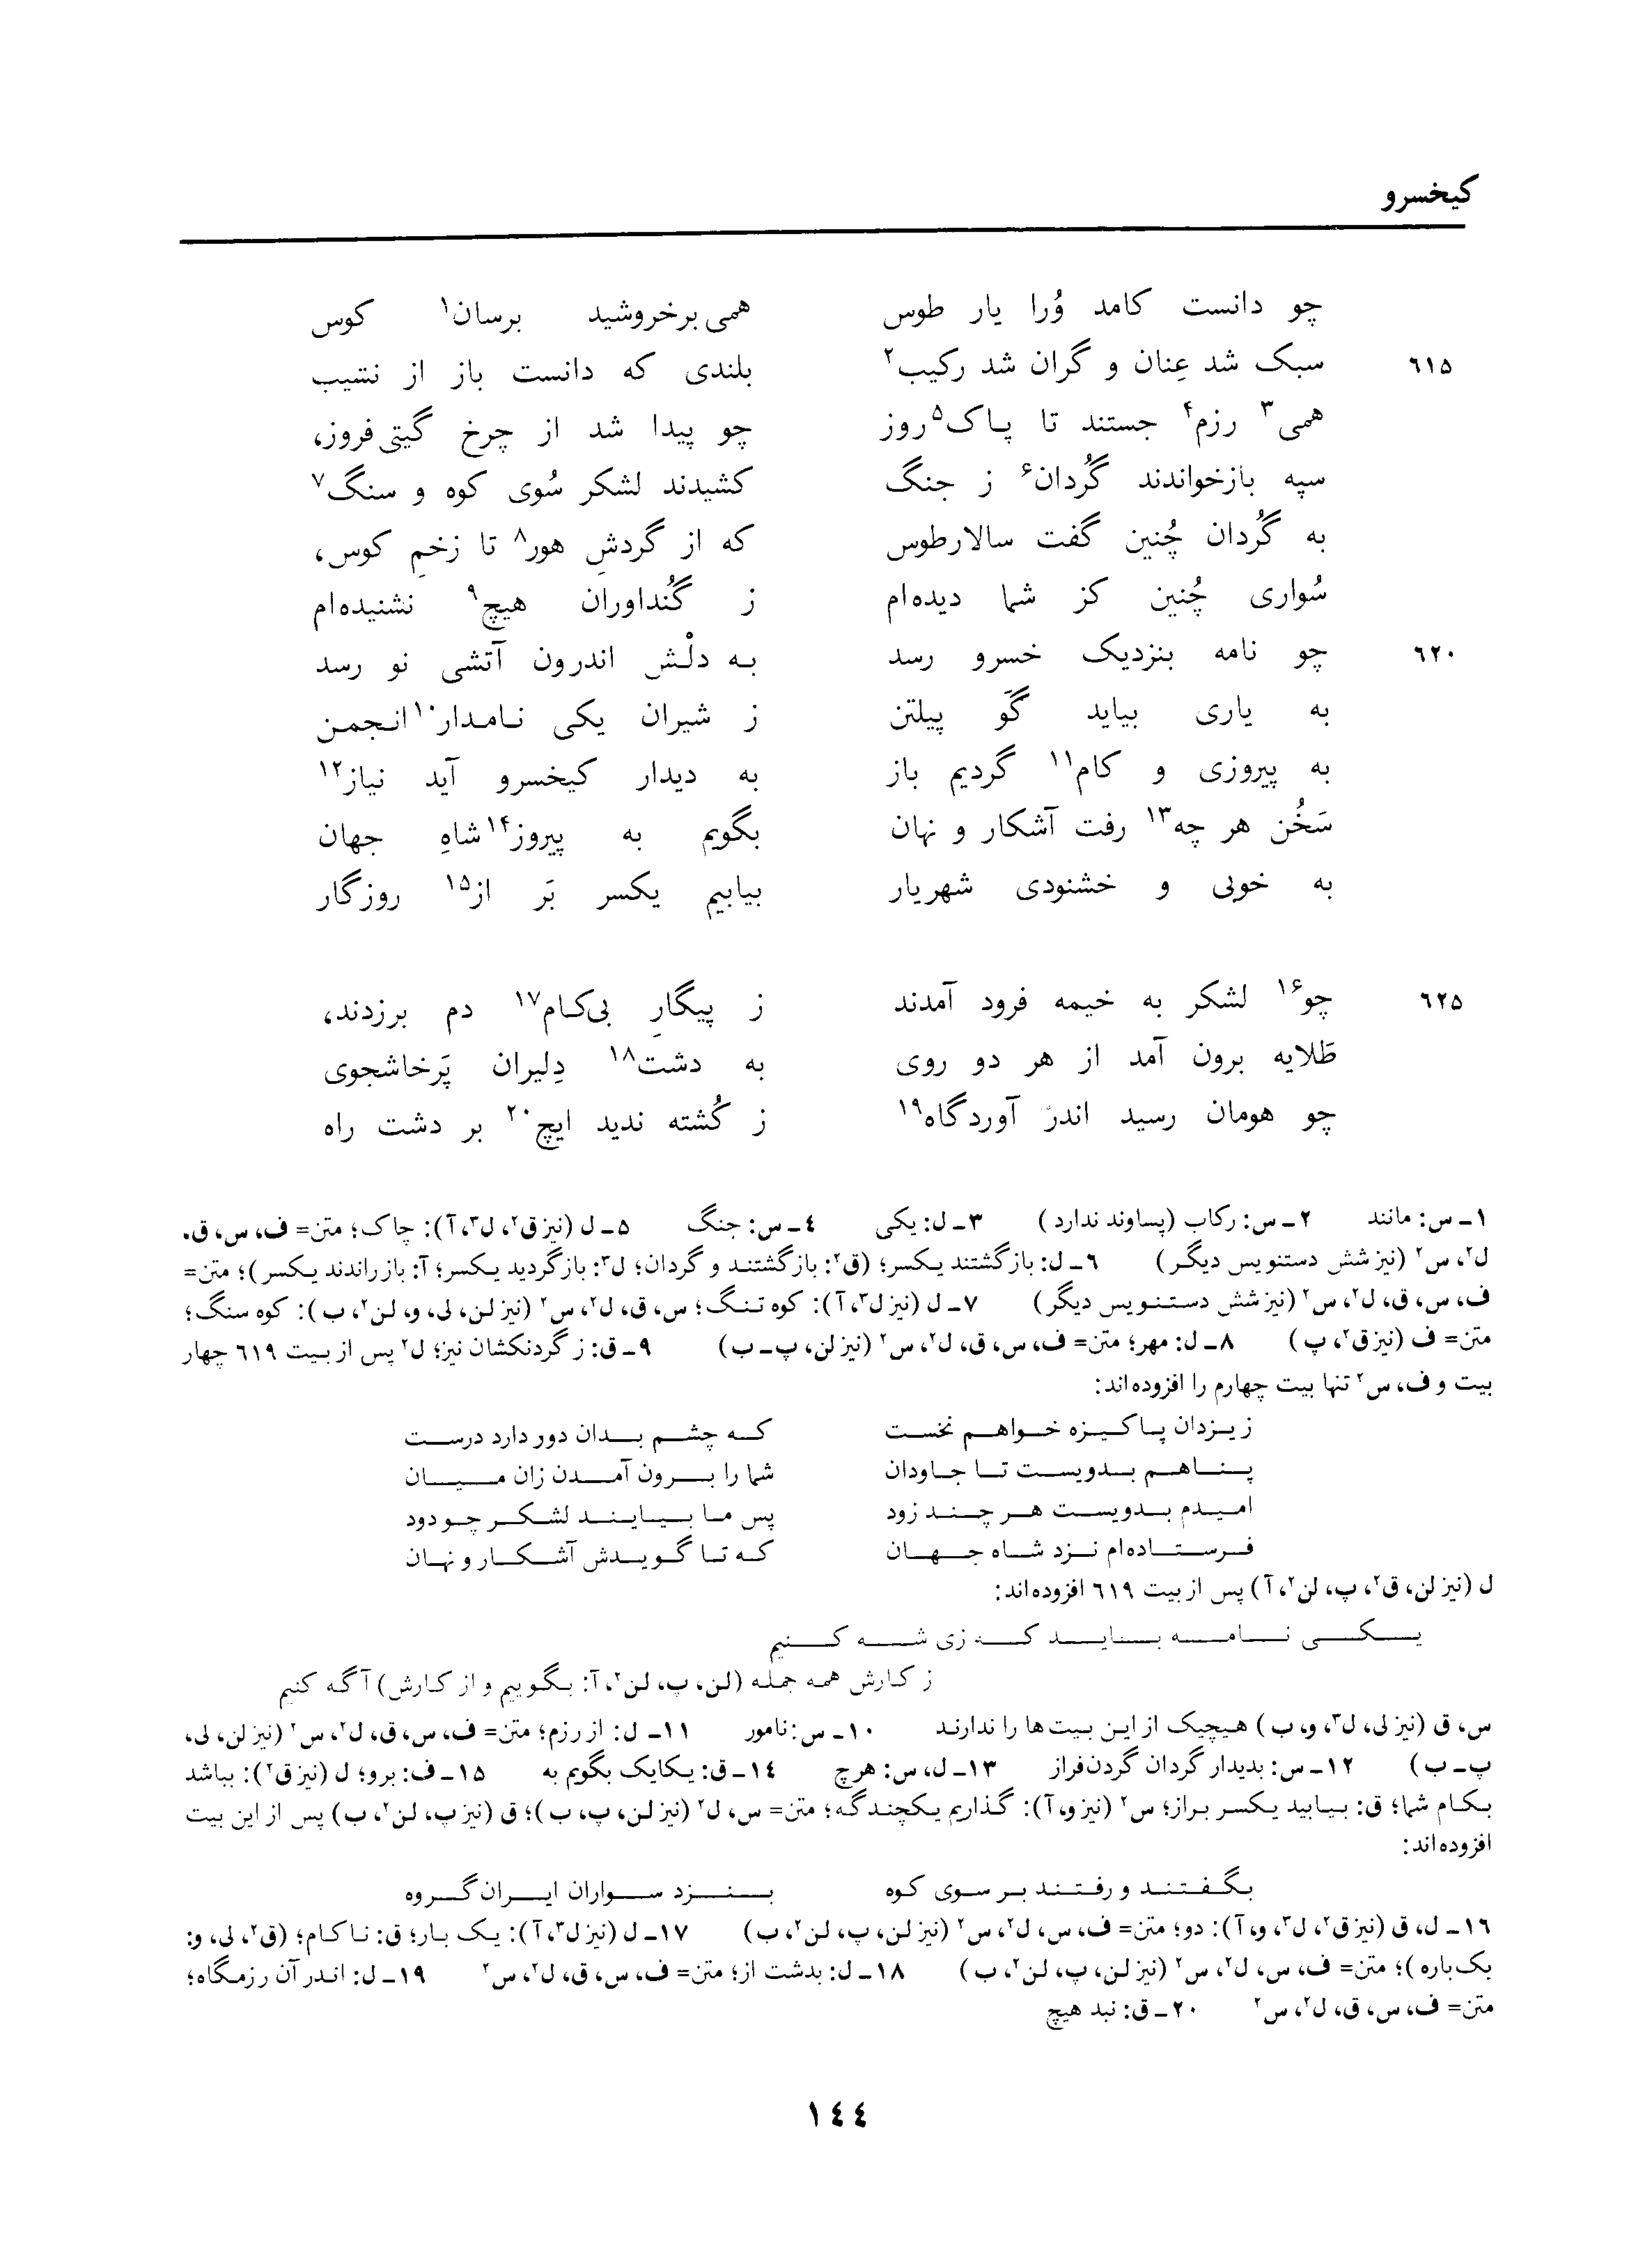 کیخسرو
چو دانست کامد وُرا یار طوس همی برخروشید برسان۱ کوس
۶۱۵ سبک شد عِنان و گران شد رکیب۲ بلندی که دانست باز از نشیب
همی۳ رزم۴ جستند تا پاک۵ روز چو پیدا شد از چرخ گیتی‌فروز،
سپه بازخواندند گُردان۶ ز جنگ کشیدند لشکر سُوی کوه و سنگ۷
به گُردان چُنین گفت سالارطوس که از گردشِ هور۸ تا زخمِ کوس،
سُواری چُنین کز شما دیده‌ام ز گُنداوران هیچ۹ نشنیده‌ام
۶۲۰ چو نامه بنزدیک خسرو رسد به دلْش اندرون آتشی نو رسد
به یاری بیاید گَو پیلتن ز شیران یکی نامدار۱۰ انجمن
به پیروزی و کام۱۱ گردیم باز به دیدار کیخسرو آید نیاز۱۲
سَخُن هر چه۱۳ رفت آشکار و نهان بگویم به پیروز۱۴ شاهِ جهان
به خوبی و خشنودی شهریار بیابیم یکسر بَر از۱۵ روزگار
۶۲۵ چو۱۶ لشکر به خیمه فرود آمدند ز پیگارِ بی‌کام۱۷ دم برزدند،
طَلایه برون آمد از هر دو روی به دشت۱۸ دِلیران پَرخاشجوی
چو هومان رسید اندر آوردگاه۱۹ ز کُشته ندید ایچ۲۰ بر دشت راه
۱ـ س: مانند ۲ـ س: رکاب (پساوند ندارد) ۳ـ ل: یکی ٤ـ س: جنگ ۵ـ ل (نیز ق۲، ل۳، آ): چاک؛ متن= ف، س، ق،
ل۲، س۲ (نیز شش دستنویس دیگر) ۶ـ ل: بازگشتند یکسر؛ (ق۲: بازگشتند و گردان؛ ل۳: بازگردید یکسر؛ آ: بازراندند یکسر)؛ متن=
ف، س، ق، ل۲، س۲ (نیز شش دستنویس دیگر) ۷ـ ل (نیز ل۳، آ): کوه تنگ؛ س، ق، ل۲، س۲ (نیز لن، لی، و، لن۲، ب): کوه سنگ؛
متن= ف (نیز ق۲، پ) ۸ـ ل: مهر؛ متن= ف، س، ق، ل۲، س۲ (نیز لن، پ ـ ب) ۹ـ ق: ز گردنکشان نیز؛ ل۲ پس از بیت ۶۱۹ چهار
بیت و ف، س۲ تنها بیت چهارم را افزوده‌اند:
ز یزدان پاکیزه خواهم نخست که چشم بدان دور دارد درست
پناهم بدویست تا جاودان شما را برون آمدن زان میان
امیدم بدویست هر چند زود پس ما بیایند لشکر چو دود
فرستاده‌ام نزد شاه جهان که تا گویدش آشکار و نهان
ل (نیز لن، ق۲، پ، لن۲، آ) پس از بیت ۶۱۹ افزوده‌اند:
یکی نامه بباید که زی شه کنیم
ز کارش همه جمله (لن، پ، لن۲، آ: بگوییم و از کارش) آگه کنیم
س، ق (نیز لی، ل۳، و، ب) هیچیک از این بیت‌ها را ندارند ۱۰ـ س: نامور ۱۱ـ ل: از رزم؛ متن= ف، س، ق، ل۲، س۲ (نیز لن، لی،
پ ـ ب) ۱۲ـ س: بدیدار گردان گردن‌فراز ۱۳ـ ل، س: هرچ ۱٤ـ ق: یکایک بگویم به ۱۵ـ ف: برو؛ ل (نیز ق۲): بباشد
بکام شما؛ ق: بیابید یکسر براز؛ س۲ (نیز و، آ): گذاریم یکچندگه؛ متن= س، ل۲ (نیز لن، پ، ب)؛ ق (نیز پ، لن۲، ب) پس از این بیت
افزوده‌اند:
بگفتند و رفتند بر سوی کوه بنزد سواران ایران گروه
۱۶ـ ل، ق (نیز ق۲، ل۳، و، آ): دو؛ متن= ف، س، ل۲، س۲ (نیز لن، پ، لن۲، ب) ۱۷ـ ل (نیز ل۳، آ): یک بار؛ ق: ناکام؛ (ق۲، لی، و:
یک باره)؛ متن= ف، س، ل۲، س۲ (نیز لن، پ، لن۲، ب) ۱۸ـ ل: بدشت از؛ متن= ف، س، ق، ل۲، س۲ ۱۹ـ ل: اندر آن رزمگاه؛
متن= ف، س، ق، ل۲، س۲ ۲۰ـ ق: نبد هیچ
۱٤٤